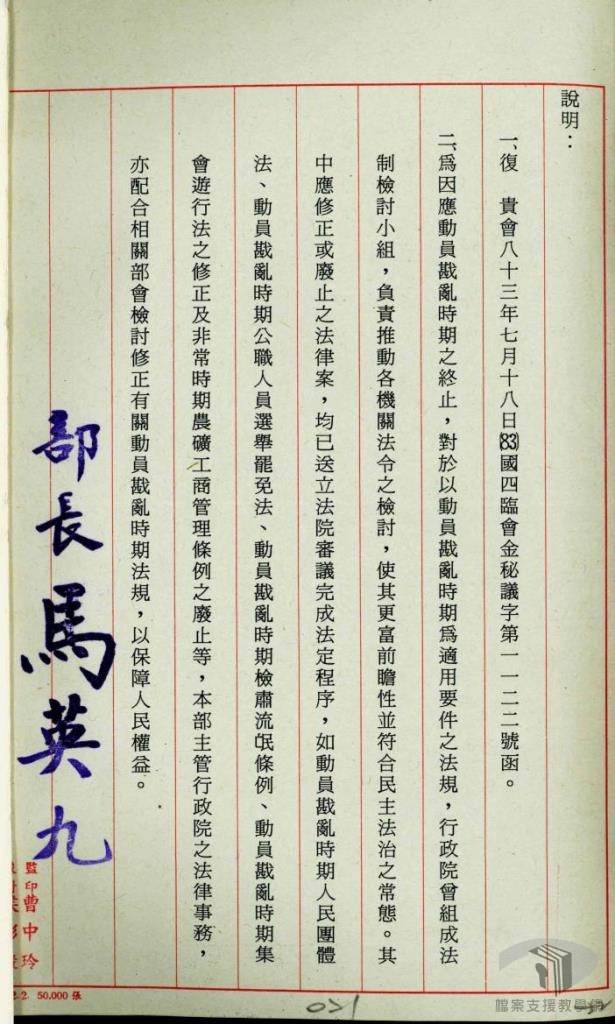 說明：
一、復　貴會八十三年七月十八日(83)國四臨會金秘議字第一一二二號函。
二、爲因應動員戡亂時期之終止，對於以動員戡亂時期爲適用要件之法規，行政院曾組成法
制檢討小組，負責推動各機關法令之檢討，使其更富前瞻性並符合民主法治之常態。其
中應修正或廢止之法律案，均已送立法院審議完成法定程序，如動員戡亂時期人民團體
法、動員戡亂時期公職人員選舉罷免法、動員戡亂時期檢肅流氓條例、動員戡亂時期集
會遊行法之修正及非常時期農礦工商管理條例之廢止等，本部主管行政院之法律事務，
亦配合相關部會檢討修正有關動員戡亂時期法規，以保障人民權益。
部長馬英九
監印曹中玲
2.2. 50,000 張
檔案支援教學網